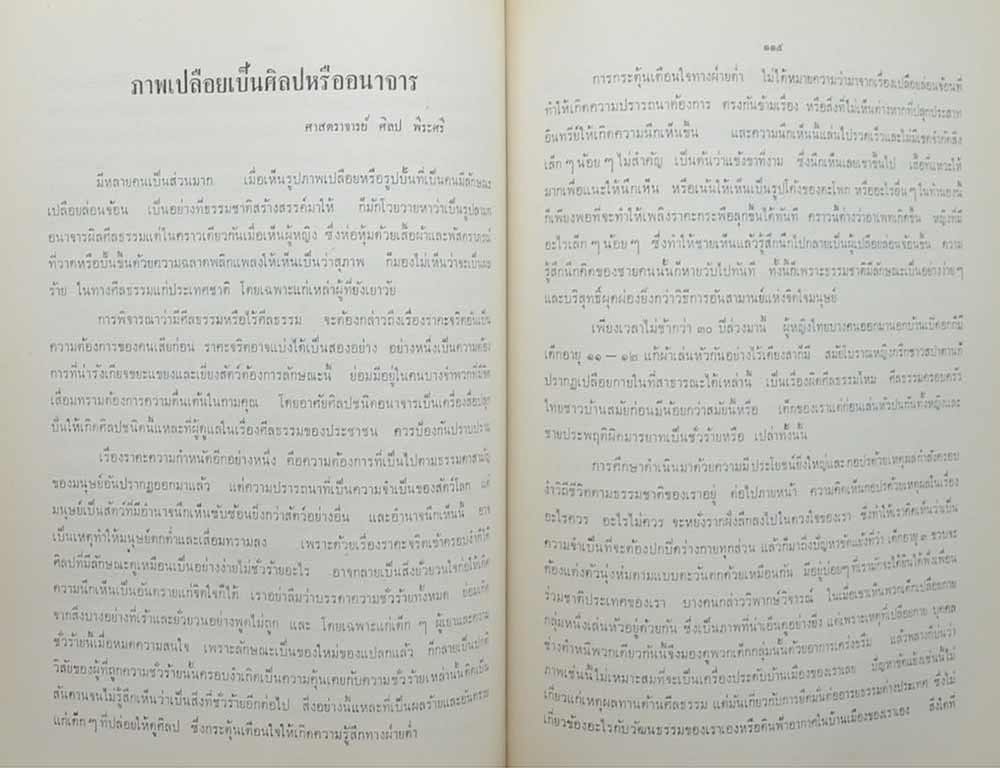 ภาพเปลือยเป็นศิลปหรืออนาจาร
ศาสตราจารย์ ศิลป พีระศรี
มีหลายคนเป็นส่วนมาก เมื่อเห็นรูปภาพเปลือยหรือรูปปั้นที่เป็นคนมีลักษณะ
เปลือยล่อนจ้อน เป็นอย่างที่ธรรมชาติสร้างสรรค์มาให้ ก็มักโวยวายหาว่าเป็นรูปลามก
อนาจารผิดศีลธรรมแต่ในคราวเดียวกันเมื่อเห็นผู้หญิง ซึ่งห่อหุ้มด้วยเสื้อผ้าและพัสตราภรณ์
ที่วาดหรือปั้นขึ้นด้วยความฉลาดพลิกแพลงให้เห็นเป็นว่าสุภาพ ก็มองไม่เห็นว่าจะเป็นผล
ร้าย ในทางศีลธรรมแก่ประเทศชาติ โดยเฉพาะแก่เหล่าผู้ที่ยังเยาวัย
การพิจารณาว่ามีศีลธรรมหรือไร้ศีลธรรม จะต้องกล่าวถึงเรื่องราคะจริตอันเป็น
ความต้องการของคนเสียก่อน ราคะจริตอาจแบ่งได้เป็นสองอย่าง อย่างหนึ่งเป็นความต้อง
การที่น่ารังเกียจขยะแขยงและเยี่ยงสัตว์ต้องการลักษณะนี้ ย่อมมีอยู่ในคนบางจำพวกที่มีจิต
เสื่อมทรามต้องการความตื่นเต้นในกามคุณ โดยอาศัยศิลปชนิดอนาจารเป็นเครื่องสื่อปลุก
ปั่นให้เกิดศิลปชนิดนี้แหละที่ผู้ดูแลในเรื่องศีลธรรมของประชาชน ควรป้องกันปราบปราม
เรื่องราคะความกำหนัดอีกอย่างหนึ่ง คือความต้องการที่เป็นไปตามธรรมดาสามัญ
ของมนุษย์อันปรากฏออกมาแล้ว แต่ความปรารถนาที่เป็นความจำเป็นของสัตว์โลก แต่
มนุษย์เป็นสัตว์ที่มีอำนาจนึกเห็นซับซ้อนยิ่งกว่าสัตว์อย่างอื่น และอำนาจนึกเห็นนี้ อาจ
เป็นเหตุทำให้มนุษย์ตกต่ำและเสื่อมทรามลง เพราะด้วยเรื่องราคะจริตเข้าครอบงำก็ได้
ศิลปที่มีลักษณะดูเหมือนเป็นอย่างง่ายไม่ชั่วร้ายอะไร อาจกลายเป็นสิ่งยั่วยวนใจก่อให้เกิด
ความนึกเห็นเป็นอันตรายแก่จิตใจก็ได้ เราอย่าลืมว่าบรรดาความชั่วร้ายทั้งหมด ย่อมเกิด
จากสิ่งบางอย่างที่เร้าและยั่วยวนอย่างพูดไม่ถูก และ โดยเฉพาะแก่เด็ก ๆ ผู้เยาว์ความ
ชั่วร้ายนี้เมื่อหมดความสนใจ เพราะลักษณะเป็นของใหม่ของแปลกแล้ว ก็กลายเป็นปกติ
วิสัยของผู้ที่ถูกความชั่วร้ายนั้นครอบงำเกิดเป็นความคุ้นเคยกับความชั่วร้ายเหล่านั้นติดเป็น
สันดานจนไม่รู้สึกเห็นว่าเป็นสิ่งที่ชั่วร้ายอีกต่อไป สิ่งอย่างนี้แหละที่เป็นผลร้ายและอันตราย
แก่เด็กๆที่ปล่อยให้ดูศิลป ซึ่งกระตุ้นเตือนใจให้เกิดความรู้สึกทางฝ่ายต่ำ
๑๑๕
การกระตุ้นเตือนใจทางฝ่ายต่ำ ไม่ได้หมายความว่ามาจากเรื่องเปลือยล่อนจ้อนที่
ทำให้เกิดความปรารถนาต้องการ ตรงกันข้ามเรื่อง หรือสิ่งที่ไม่เห็นต่างหากที่ปลุกประสาท
อินทรีย์ให้เกิดความนึกเห็นขึ้น และความนึกเห็นนี้แล่นไปรวดเร็วและไม่มีเขตจำกัดสิ่ง
เล็ก ๆ น้อย ๆ ไม่สำคัญ เป็นต้นว่าแข้งขาที่งาม ซึ่งนึกเห็นเลยเขาขึ้นไป เสื้อที่แหวะให้
มากเพื่อแนะให้นึกเห็น หรือเน้นให้เห็นเป็นรูปโค้งของตะโพก หรืออะไรอื่นๆ ในทำนองนี้
ก็เพียงพอที่จะทำให้เพลิงราคะกระพือลุกขึ้นได้ทันที คราวนี้ต่างว่าอาเพทเกิดขึ้น หญิงที่มี
อะไรเล็กๆ น้อยๆ ซึ่งทำให้ชายเห็นแล้วรู้สึกนึกไปกลายเป็นผู้เปลือยล่อนจ้อนขึ้น ความ
รู้สึกนึกคิดของชายคนนั้นก็หายวับไปทันที ทั้งนี้ก็เพราะธรรมชาติมีลักษณะเป็นอย่างง่ายๆ
และบริสุทธิ์ผุดผ่องยิ่งกว่าวิธีการอันสามานย์แห่งจิตใจมนุษย์
เพียงเวลาไม่ช้ากว่า ๓๐ ปีล่วงมานี้ ผู้หญิงไทยบางคนออกมานอกบ้านเปิดอกก็มี
เด็กอายุ ๑๑ — ๑๒ แก้ผ้าเล่นหัวกันอย่างไร้เดียงสาก็มี สมัยโบราณหญิงกรีกชาวสปาตานก็
ปรากฏเปลือยกายในที่สาธารณะได้เหล่านี้ เป็นเรื่องผิดศีลธรรมไหม ศีลธรรมครอบครัว
ไทยชาวบ้านสมัยก่อนมีน้อยกว่าสมัยนี้หรือ เด็กของเราแต่ก่อนเล่นหัวปนกันทั้งหญิงและ
ชายประพฤติผิดมารยาทเป็นชั่วร้ายหรือ เปล่าทั้งนั้น
การศึกษาดำเนินมาด้วยความมีประโยชน์ยิ่งใหญ่และกอปรด้วยเหตุผลกำลังครอบ
งำวิถีชีวิตตามธรรมชาติของเราอยู่ ต่อไปภายหน้า ความคิดเห็นกอปรด้วยเหตุผลในเรื่อง
อะไรควร อะไรไม่ควร จะหยั่งรากฝังลึกลงไปในดวงใจของเรา ซึ่งทำให้เราคิดเห็นว่าเป็น
ความจำเป็นที่จะต้องปกปิดร่างกายทุกส่วน แล้วก็มาถึงปัญหาขัดแย้งที่ว่า เด็กอายุ ๓ ขวบจะ
ต้องแต่งตัวนุ่งห่มตามแบบตะวันตกด้วยเหมือนกัน มีอยู่บ่อยๆที่เรามักจะได้ยินได้ฟังเพื่อน
ร่วมชาติประเทศของเรา บางคนกล่าววิพากษ์วิจารณ์ ในเมื่อเขาเห็นพวกเด็กเปลือยกาย
กลุ่มหนึ่งเล่นหัวอยู่ด้วยกัน ซึ่งเป็นภาพที่น่าเอ็นดูอย่างยิ่ง แต่เพราะเหตุที่เปลือยกาย บุคคล
ช่างตำหนิพวกเดียวกันนี้จึงมองดูพวกเด็กกลุ่มนั้นด้วยอาการเคร่งขรึม แล้วพลางก็บ่นว่า
ภาพเช่นนี้ไม่เหมาะสมที่จะเป็นเครื่องประดับบ้านเมืองของเราเลย ปัญหาขัดแย้งเช่นนี้ไม่
เกี่ยวแก่เหตุผลทางด้านศีลธรรม แต่มันเกี่ยวกับการยึดมั่นแก่อารยธรรมต่างประเทศ ซึ่งไม่
เกี่ยวข้องอะไรกับวัฒนธรรมของเราเองหรือดินฟ้าอากาศในบ้านเมืองของเราเอง สิ่งใดที่